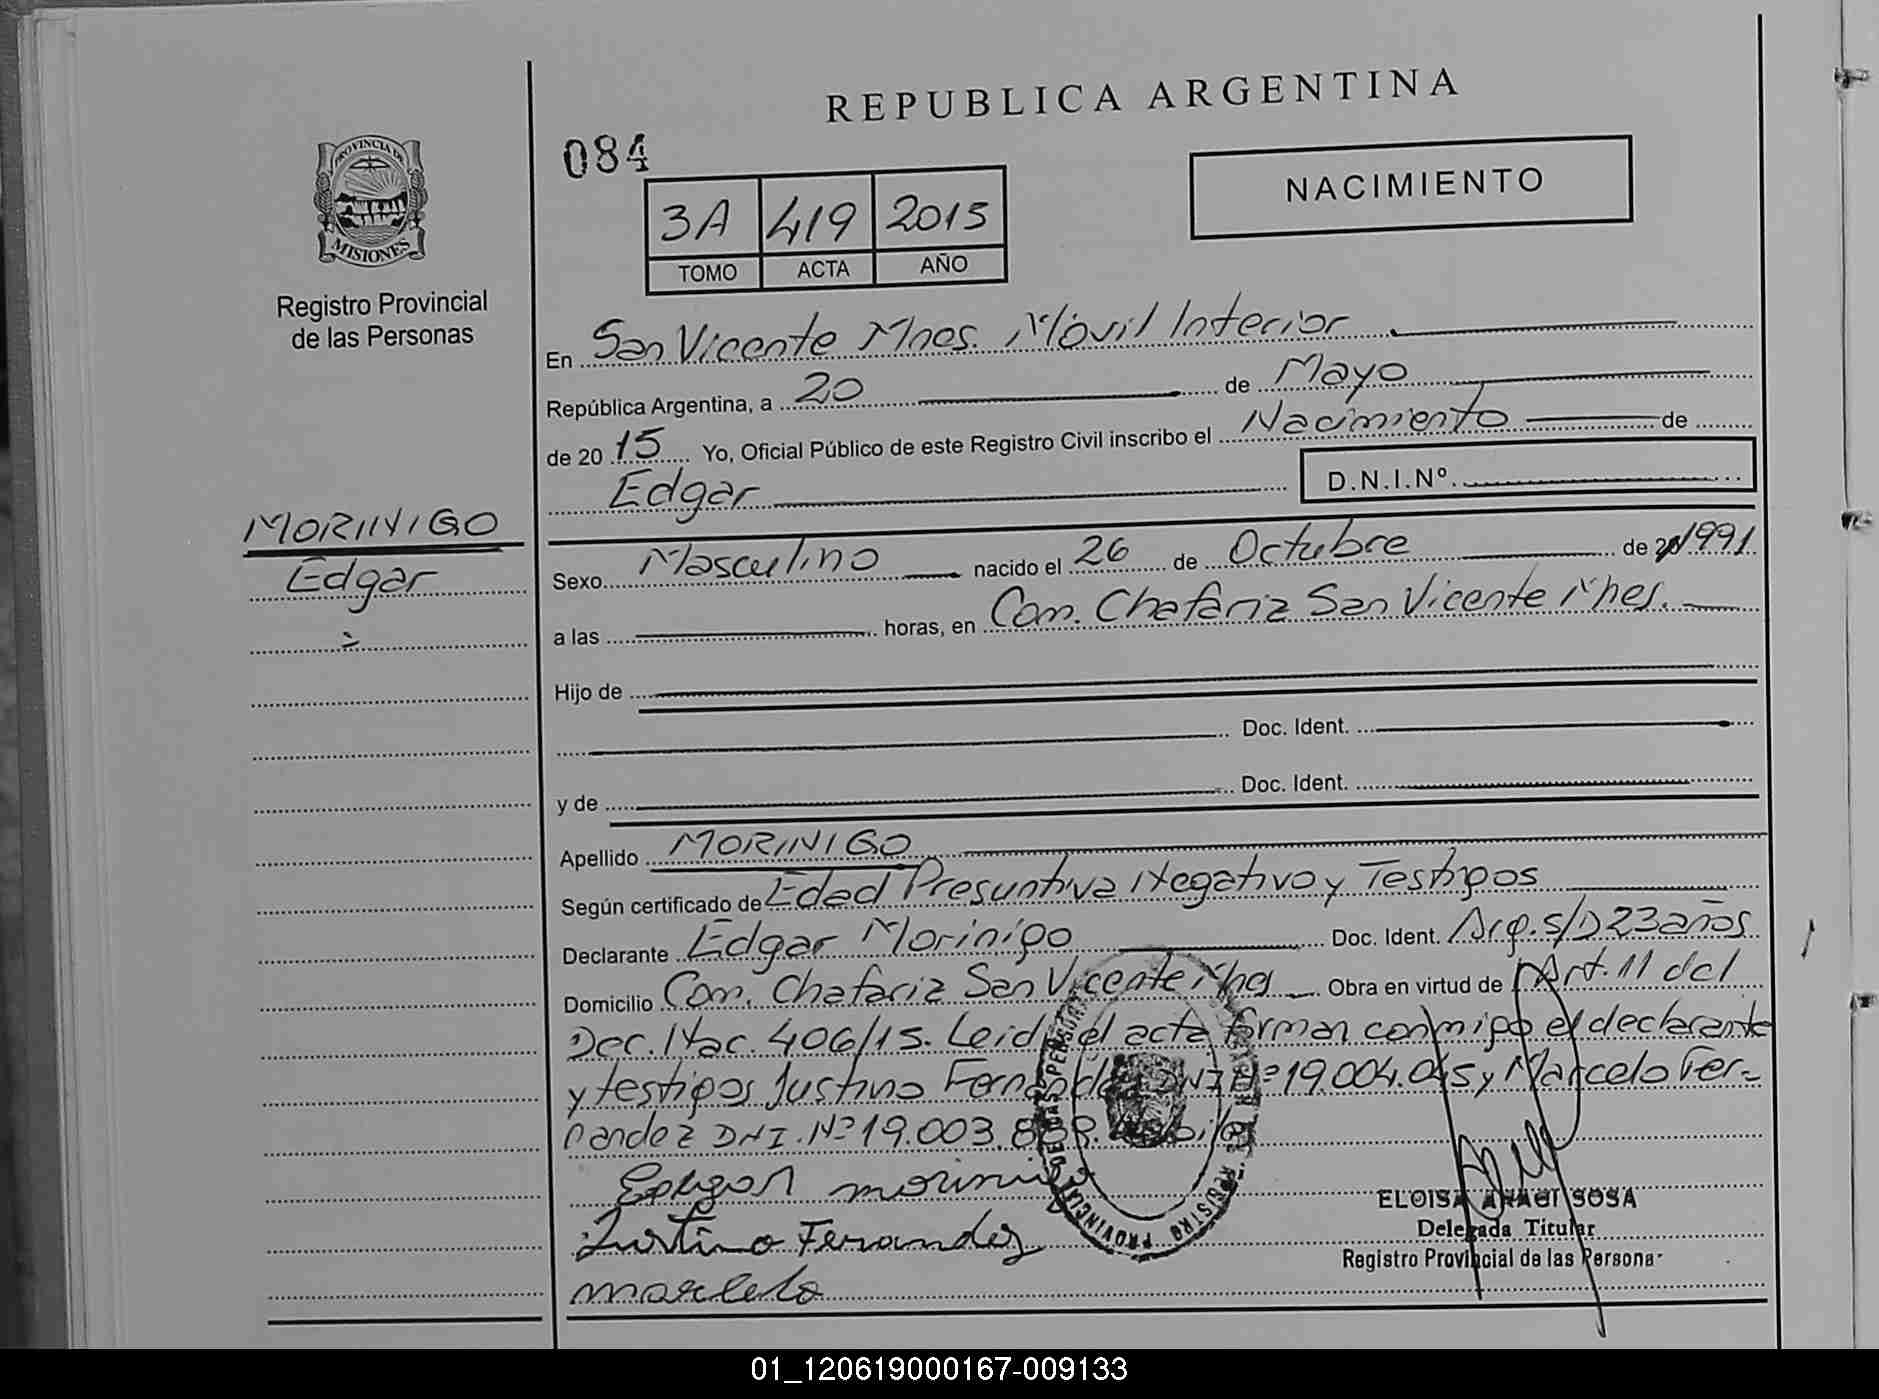 REPUBLICA ARGENTINA
084
NACIMIENTO
3A 419 2015
TOMO ACTA AÑO
PROVINCIA DE
MISIONES
Registro Provincial
de las Personas
En San Vicente Mnes. Móvil Interior
República Argentina, a 20 de Mayo
de 20 15 Yo, Oficial Público de este Registro Civil inscribo el Nacimiento de
Edgar D.N.I.Nº.
MORINIGO
Edgar
Sexo Masculino nacido el 26 de Octubre de 1991
a las horas, en Com. Chafariz San Vicente Mnes.
Hijo de
Doc. Ident.
y de Doc. Ident.
Apellido MORINIGO
Según certificado de Edad Presuntiva Negativo y Testigos
Declarante Edgar Morinigo Doc. Ident. Arg. S/D 23 años
Domicilio Com. Chafariz San Vicente Mnes Obra en virtud de Art. 11 del
Dec. Nac. 406/15. Leid el acta firman conmigo el declarante
y testigos Justino Fernandez DNI Nº 19.004.045 y Marcelo Fer-
nandez DNI. Nº 19.003.
Edegar morini
Justino Ferandez
marcelo
REGISTRO PROVINCIAL DE LAS PERSONAS
ELOISA ANAHI SOSA
Delegada Titular
Registro Provincial de las Persona
01_120619000167-009133